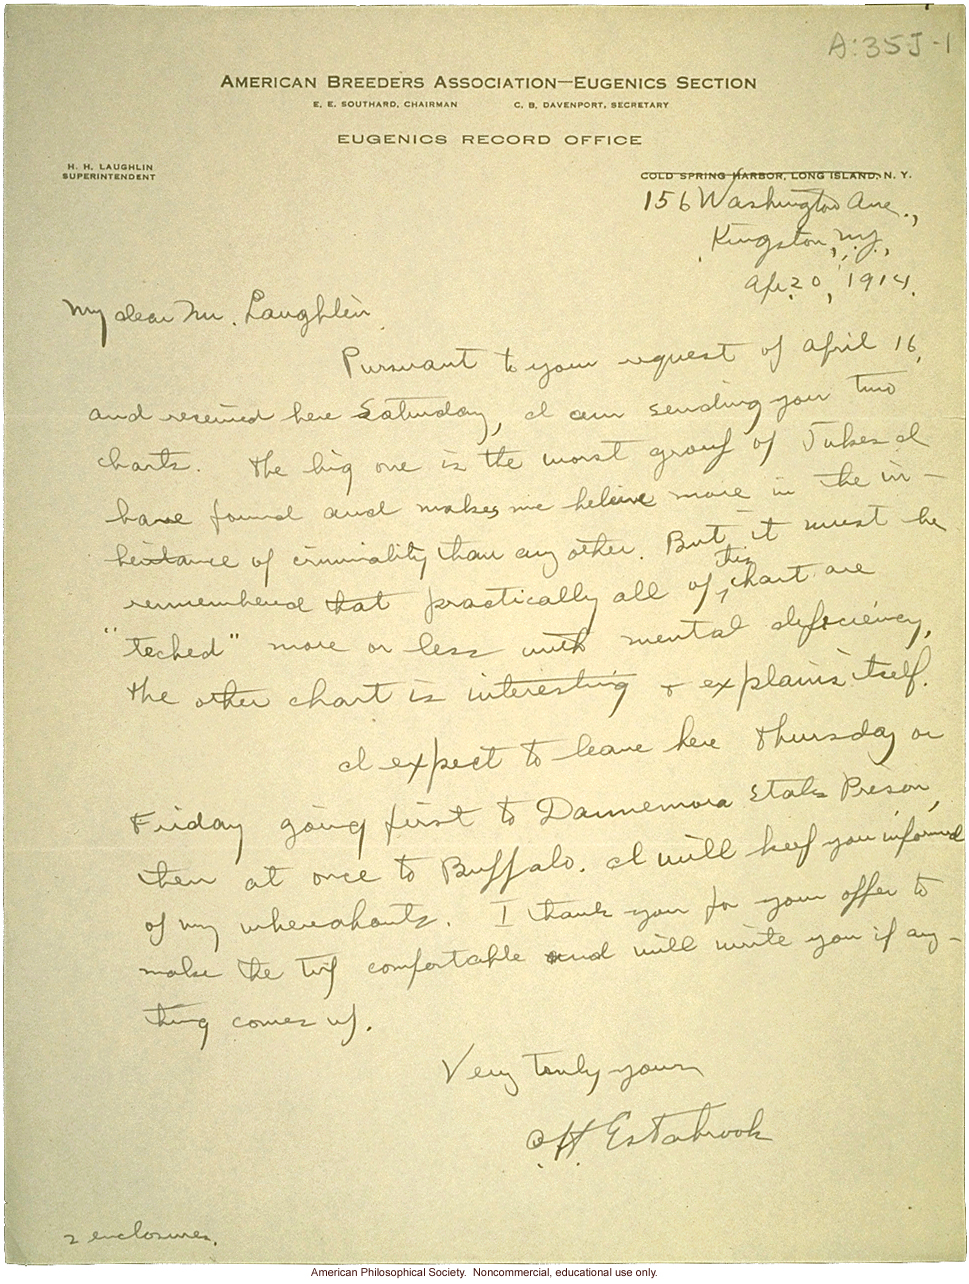 A:35J-1
AMERICAN BREEDERS ASSOCIATION—EUGENICS SECTION
E. E. SOUTHARD, CHAIRMAN C. B. DAVENPORT, SECRETARY
EUGENICS RECORD OFFICE
H. H. LAUGHLIN
SUPERINTENDENT
COLD SPRING HARBOR, LONG ISLAND, N. Y.
156 Washington Ave.,
Kingston, N.Y.,
Ap. 20, 1914.
My dear Mr. Laughlin
Pursuant to your request of April 16,
and received here Saturday, I am sending you two
charts. The big one is the worst group of Jukes I
have found and makes me believe more in the in-
heritance of criminality than any other. But it must be
remembered that practically all of this chart are
"teched" more or less with mental deficiency,
the other chart is interesting + explains itself.
I expect to leave here Thursday or
Friday going first to Dannemora State Preson,
then at once to Buffalo. I will keep you informed
of my whereabouts. I thank you for your offer to
make the trip comfortable and will write you if any-
thing comes up.
Very truly yours
A.H. Estabrook
2 enclosures.
American Philosophical Society. Noncommercial, educational use only.